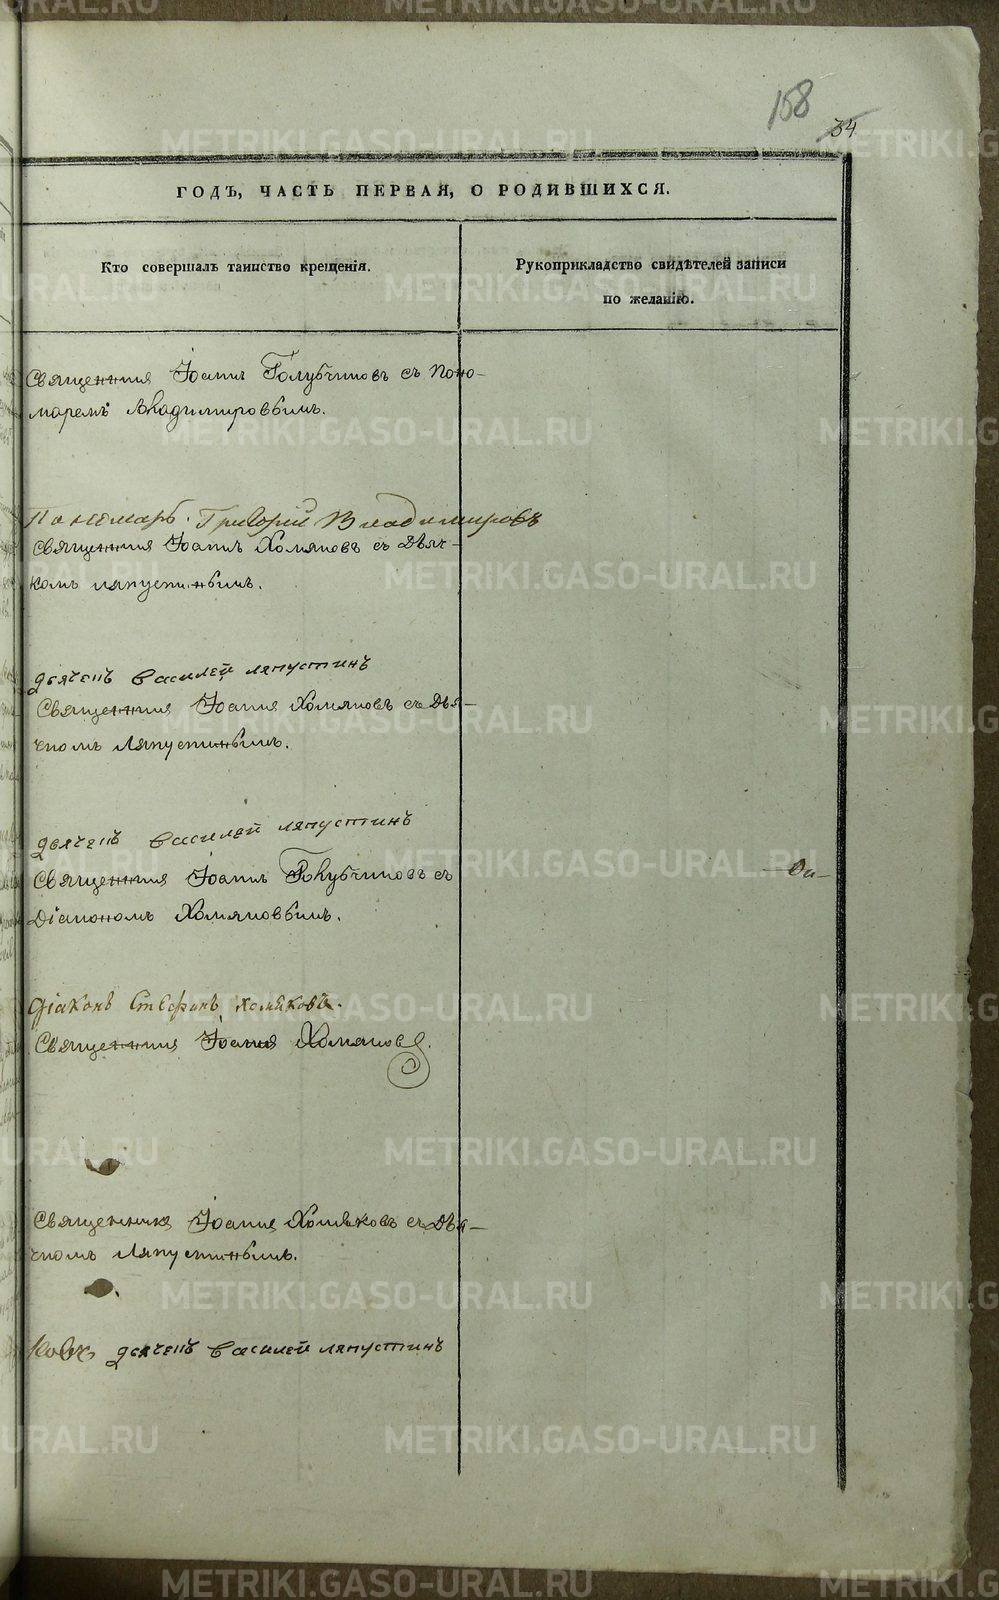 158
34
ГОДЪ, ЧАСТЬ ПЕРВАЯ, О РОДИВШИХСЯ.
Кто совершалъ таинство крещенія.
Рукоприкладство свидѣтелей записи
по желанію.
Священникъ Іоаннъ Голубчиковъ съ Поно-
маремъ Владимировымъ.
Пономарь Григорій Владимировъ
Священникъ Іоаннъ Хомяковъ съ Дьяч-
комъ Ляпустинымъ.
дьячекъ Василей ляпустинъ
Священникъ Іоаннъ Хомяковъ съ Дья-
чкомъ Ляпустинымъ.
дьячекъ Василей ляпустинъ
Священникъ Іоаннъ Голубчиковъ съ
Діакономъ Хомяковымъ.
Діаконъ Стефанъ хомяковъ.
Священникъ Іоаннъ Хомяковъ.
Священникъ Іоаннъ Хомяковъ съ Дья-
чкомъ Ляпустинымъ.
дьячекъ Василей ляпустинъ
METRIKI.GASO-URAL.RU